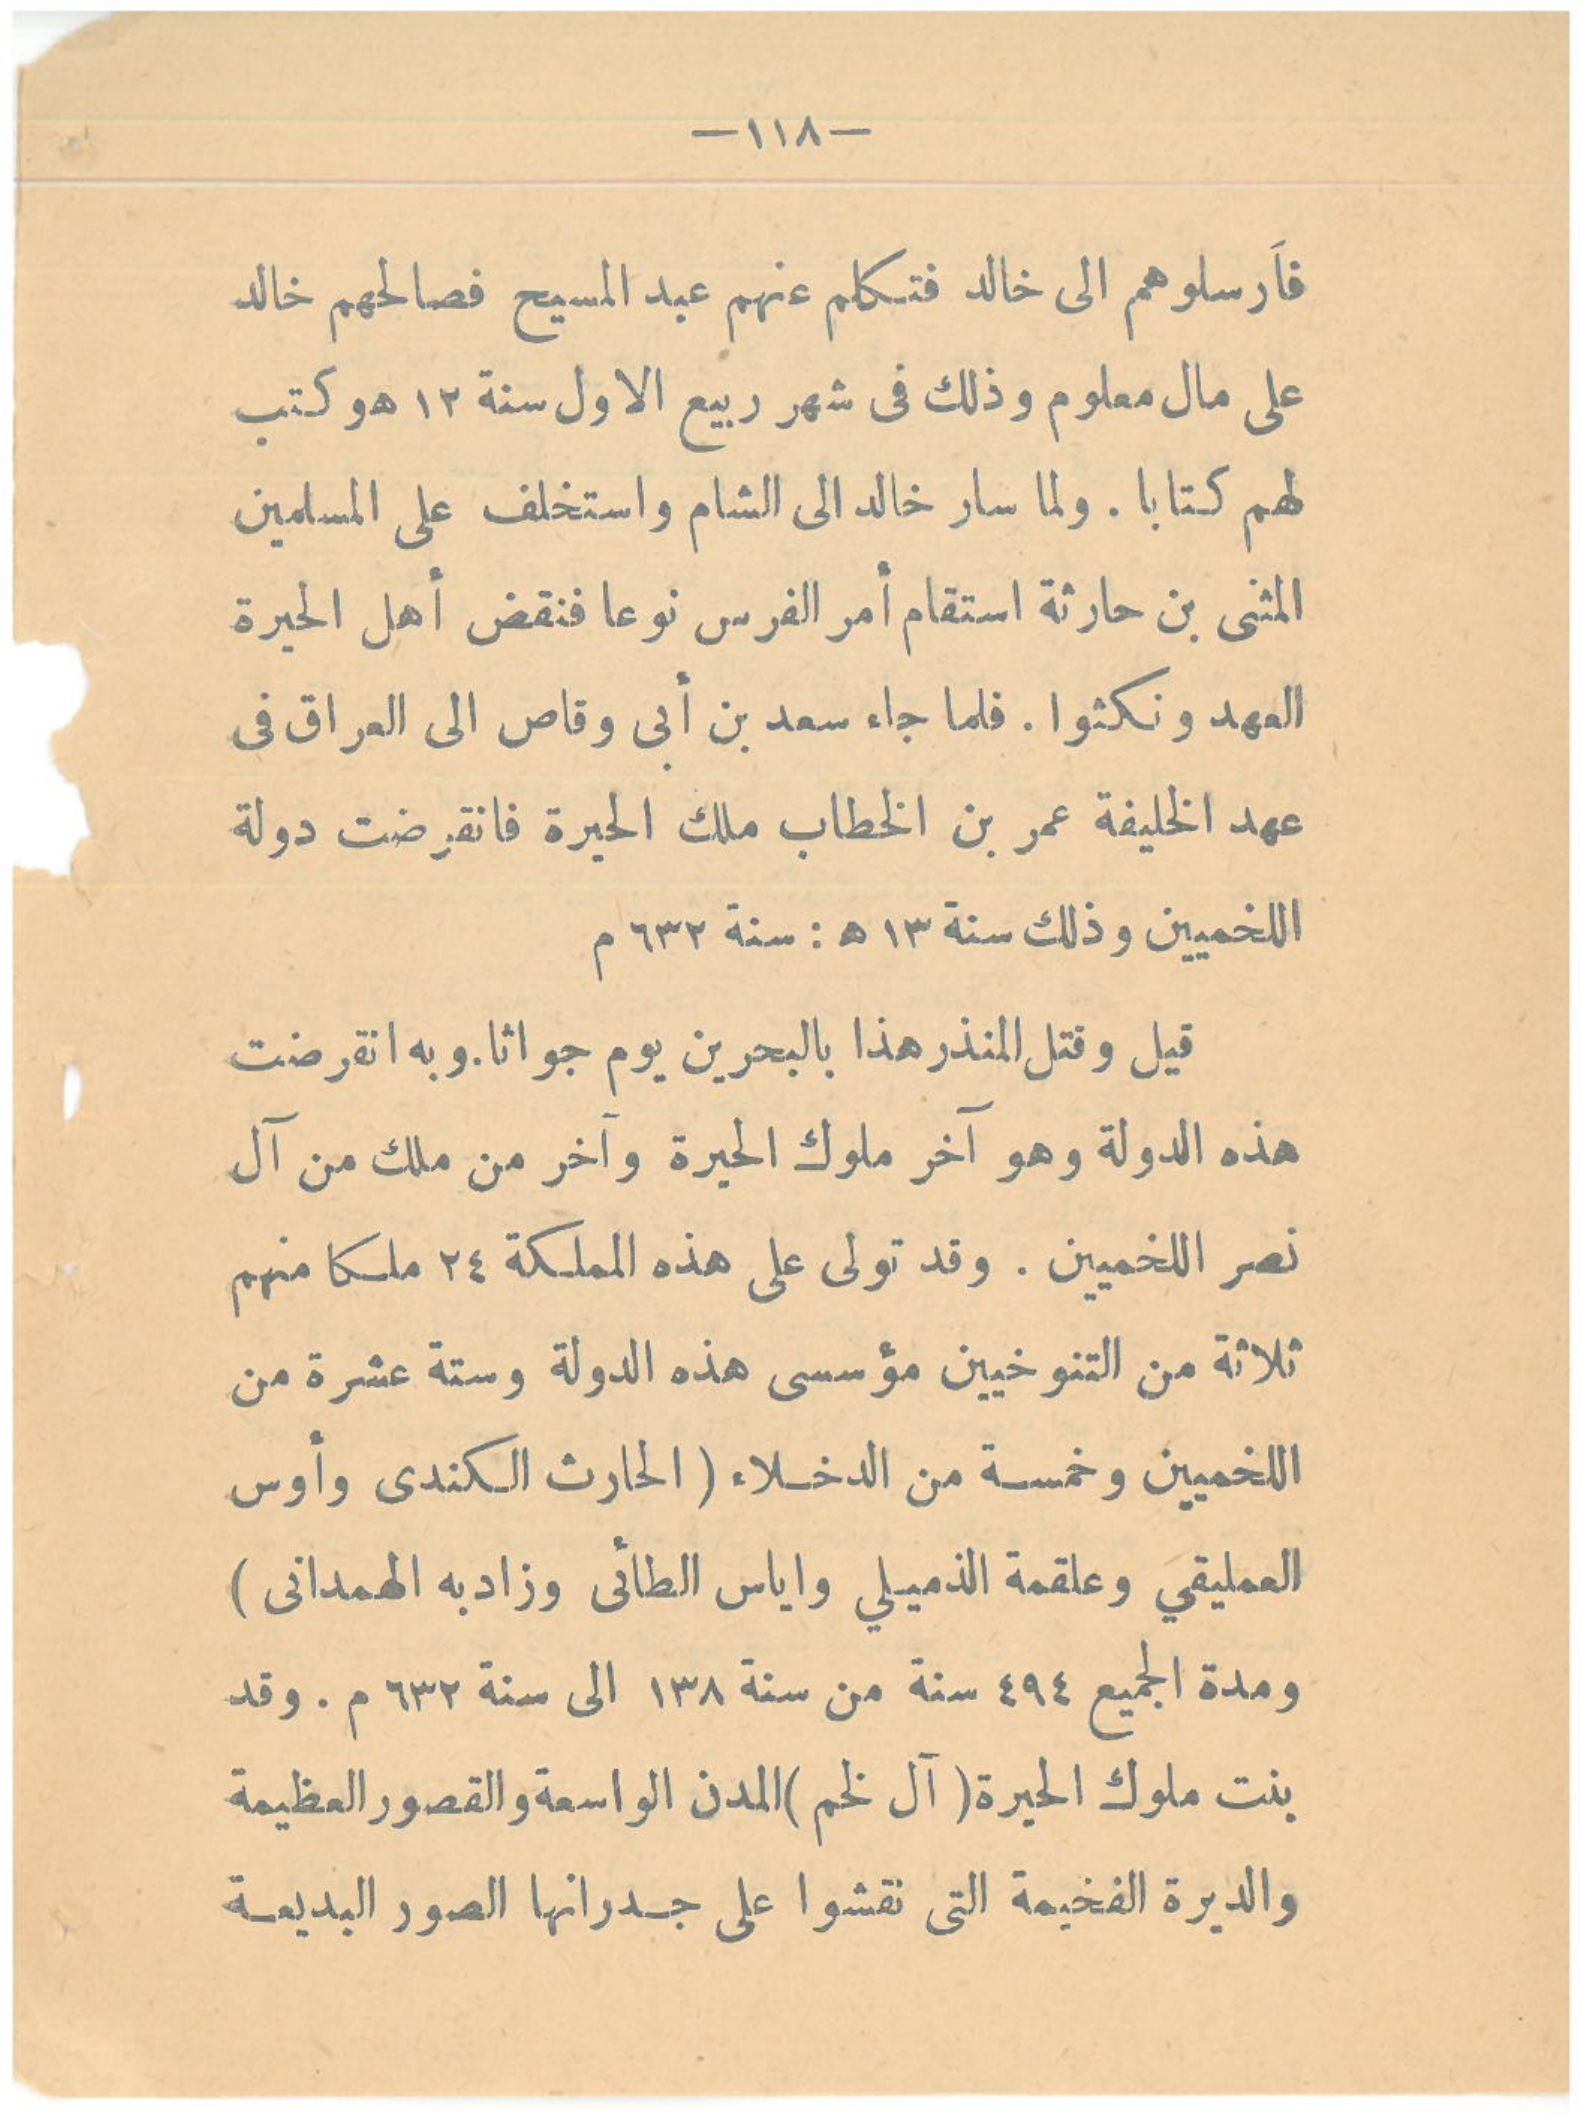 —١١٨—
فأرسلوهم الى خالد فتكلم عنهم عبد المسيح فصالحهم خالد
على مال معلوم وذلك فى شهر ربيع الاول سنة ١٢ ه وكتب
لهم كتابا . ولما سار خالد الى الشام واستخلف على المسلمين
المثنى بن حارثة استقام أمر الفرس نوعا فنقض أهل الحيرة
العهد ونكثوا . فلما جاء سعد بن أبى وقاص الى العراق فى
عهد الخليفة عمر بن الخطاب ملك الحيرة فانقرضت دولة
اللخميين وذلك سنة ١٣ ه : سنة ٦٣٢ م
قيل وقتل المنذر هذا بالبحرين يوم جواثا . وبه انقرضت
هذه الدولة وهو آخر ملوك الحيرة وآخر من ملك من آل
نصر اللخميين . وقد تولى على هذه المملكة ٢٤ ملكا منهم
ثلاثة من التنوخيين مؤسسى هذه الدولة وستة عشرة من
اللخميين وخمسة من الدخلاء ( الحارث الكندى وأوس
العمليقي وعلقمة الذميلي واياس الطائى وزادبه الهمدانى )
ومدة الجميع ٤٩٤ سنة من سنة ١٣٨ الى سنة ٦٣٢ م . وقد
بنت ملوك الحيرة ( آل لخم ) المدن الواسعة والقصور العظيمة
والديرة الفخيمة التى نقشوا على جدرانها الصور البديعة